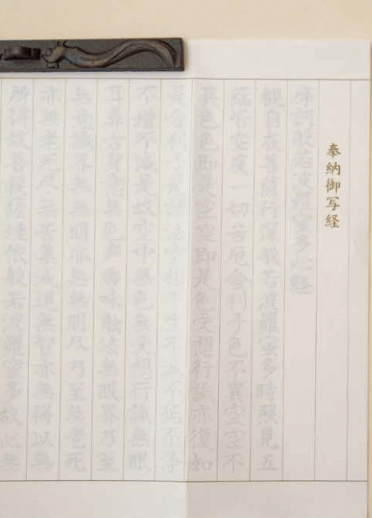 奉納御写経
摩訶般若波羅蜜多心経
観自在菩薩行深般若波羅蜜多時照見五
蘊皆空度一切苦厄舎利子色不異空空不
異色色即是空空即是色受想行識亦復如
是舎利子是諸法空想不生不滅不垢不浄
不増不減是故空中無色無受想行識無眼
耳鼻舌身意無色声香味触法無眼界乃至
無意識界無無明亦無無明尽乃至無老死
亦無老死尽無苦集滅道無智亦無得以無
所得故菩提薩埵依般若波羅蜜多故心無